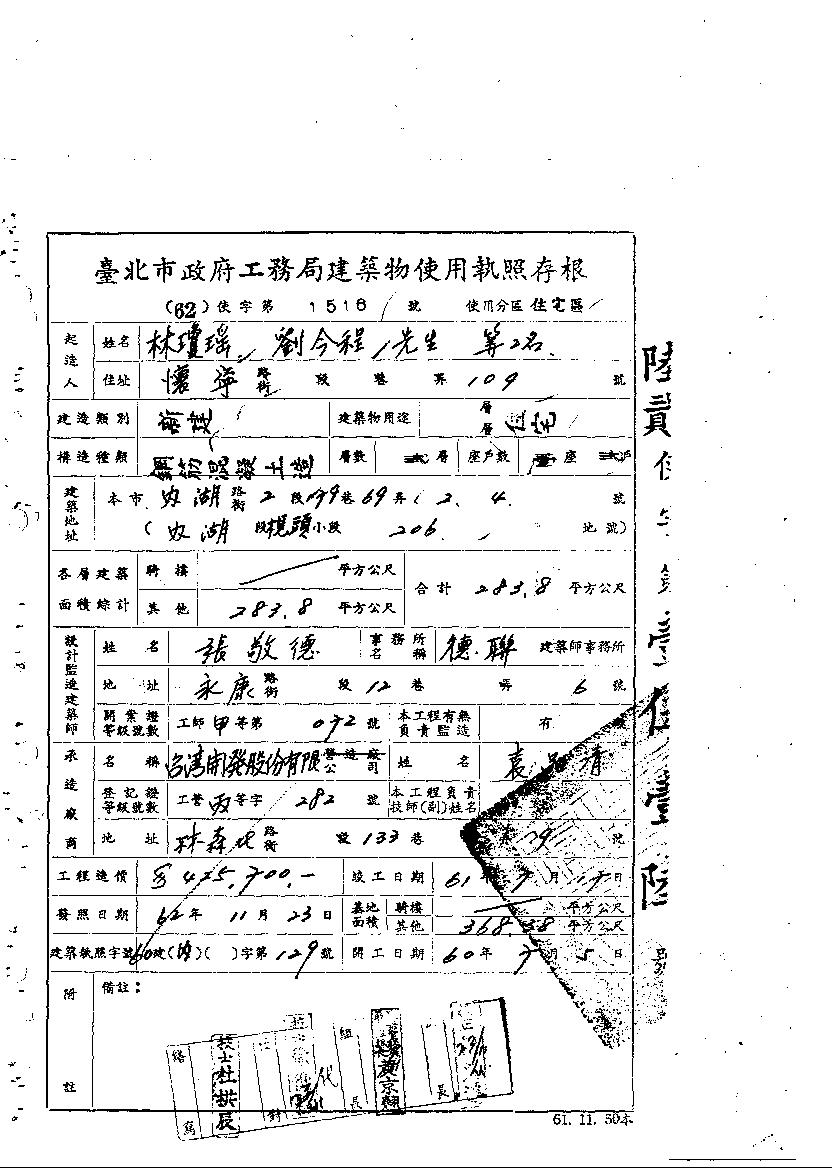 臺北市政府工務局建築物使用執照存根
(62)使字第 1516 號 使用分區 住宅區
起造人 姓名 林瓊瑶 劉今程 先生 等2名
住址 懷寧 路街 段 巷 弄 109 號
建造類別 新建 建築物用途 層 層 住宅
構造種類 鋼筋混凝土造 層數 層 座戶數 座 戶
建築地址 本市 內湖 路街 2 段 巷 69 弄 2. 4. 號
(內湖 段 小段 206 地號)
各層建築面積綜計 騎樓 平方公尺 合計 283.8 平方公尺
其他 283.8 平方公尺
設計監造建築師 姓名 張敬德 事務所名稱 德聯 建築師事務所
地址 永康 路街 段 12 巷 弄 6 號
開業證等級號數 工師 甲 等第 072 號 本工程有無負責監造 有
承造廠商 名稱 台湾開發股份有限 營造廠公司 姓名 袁 清
登記證等級號數 工營 丙 等字 282 號 本工程負責技師(副)姓名
地址 林森北 路街 段 133 巷 號
工程造價 $ 425,700.- 竣工日期 61 年 7 月 17 日
發照日期 62 年 11 月 23 日 基地面積 騎樓 平方公尺
其他 368.38 平方公尺
建築執照字號 60 建( )( )字第 129 號 開工日期 60 年 7 月 5 日
附註 備註:
繕寫 技士杜拱辰 校對 代 組長 長
61. 11. 50本
陸貳使字第壹伍壹陸號